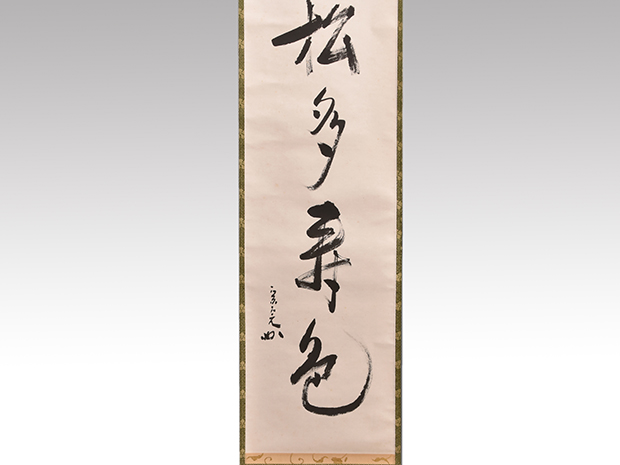 松多寿色